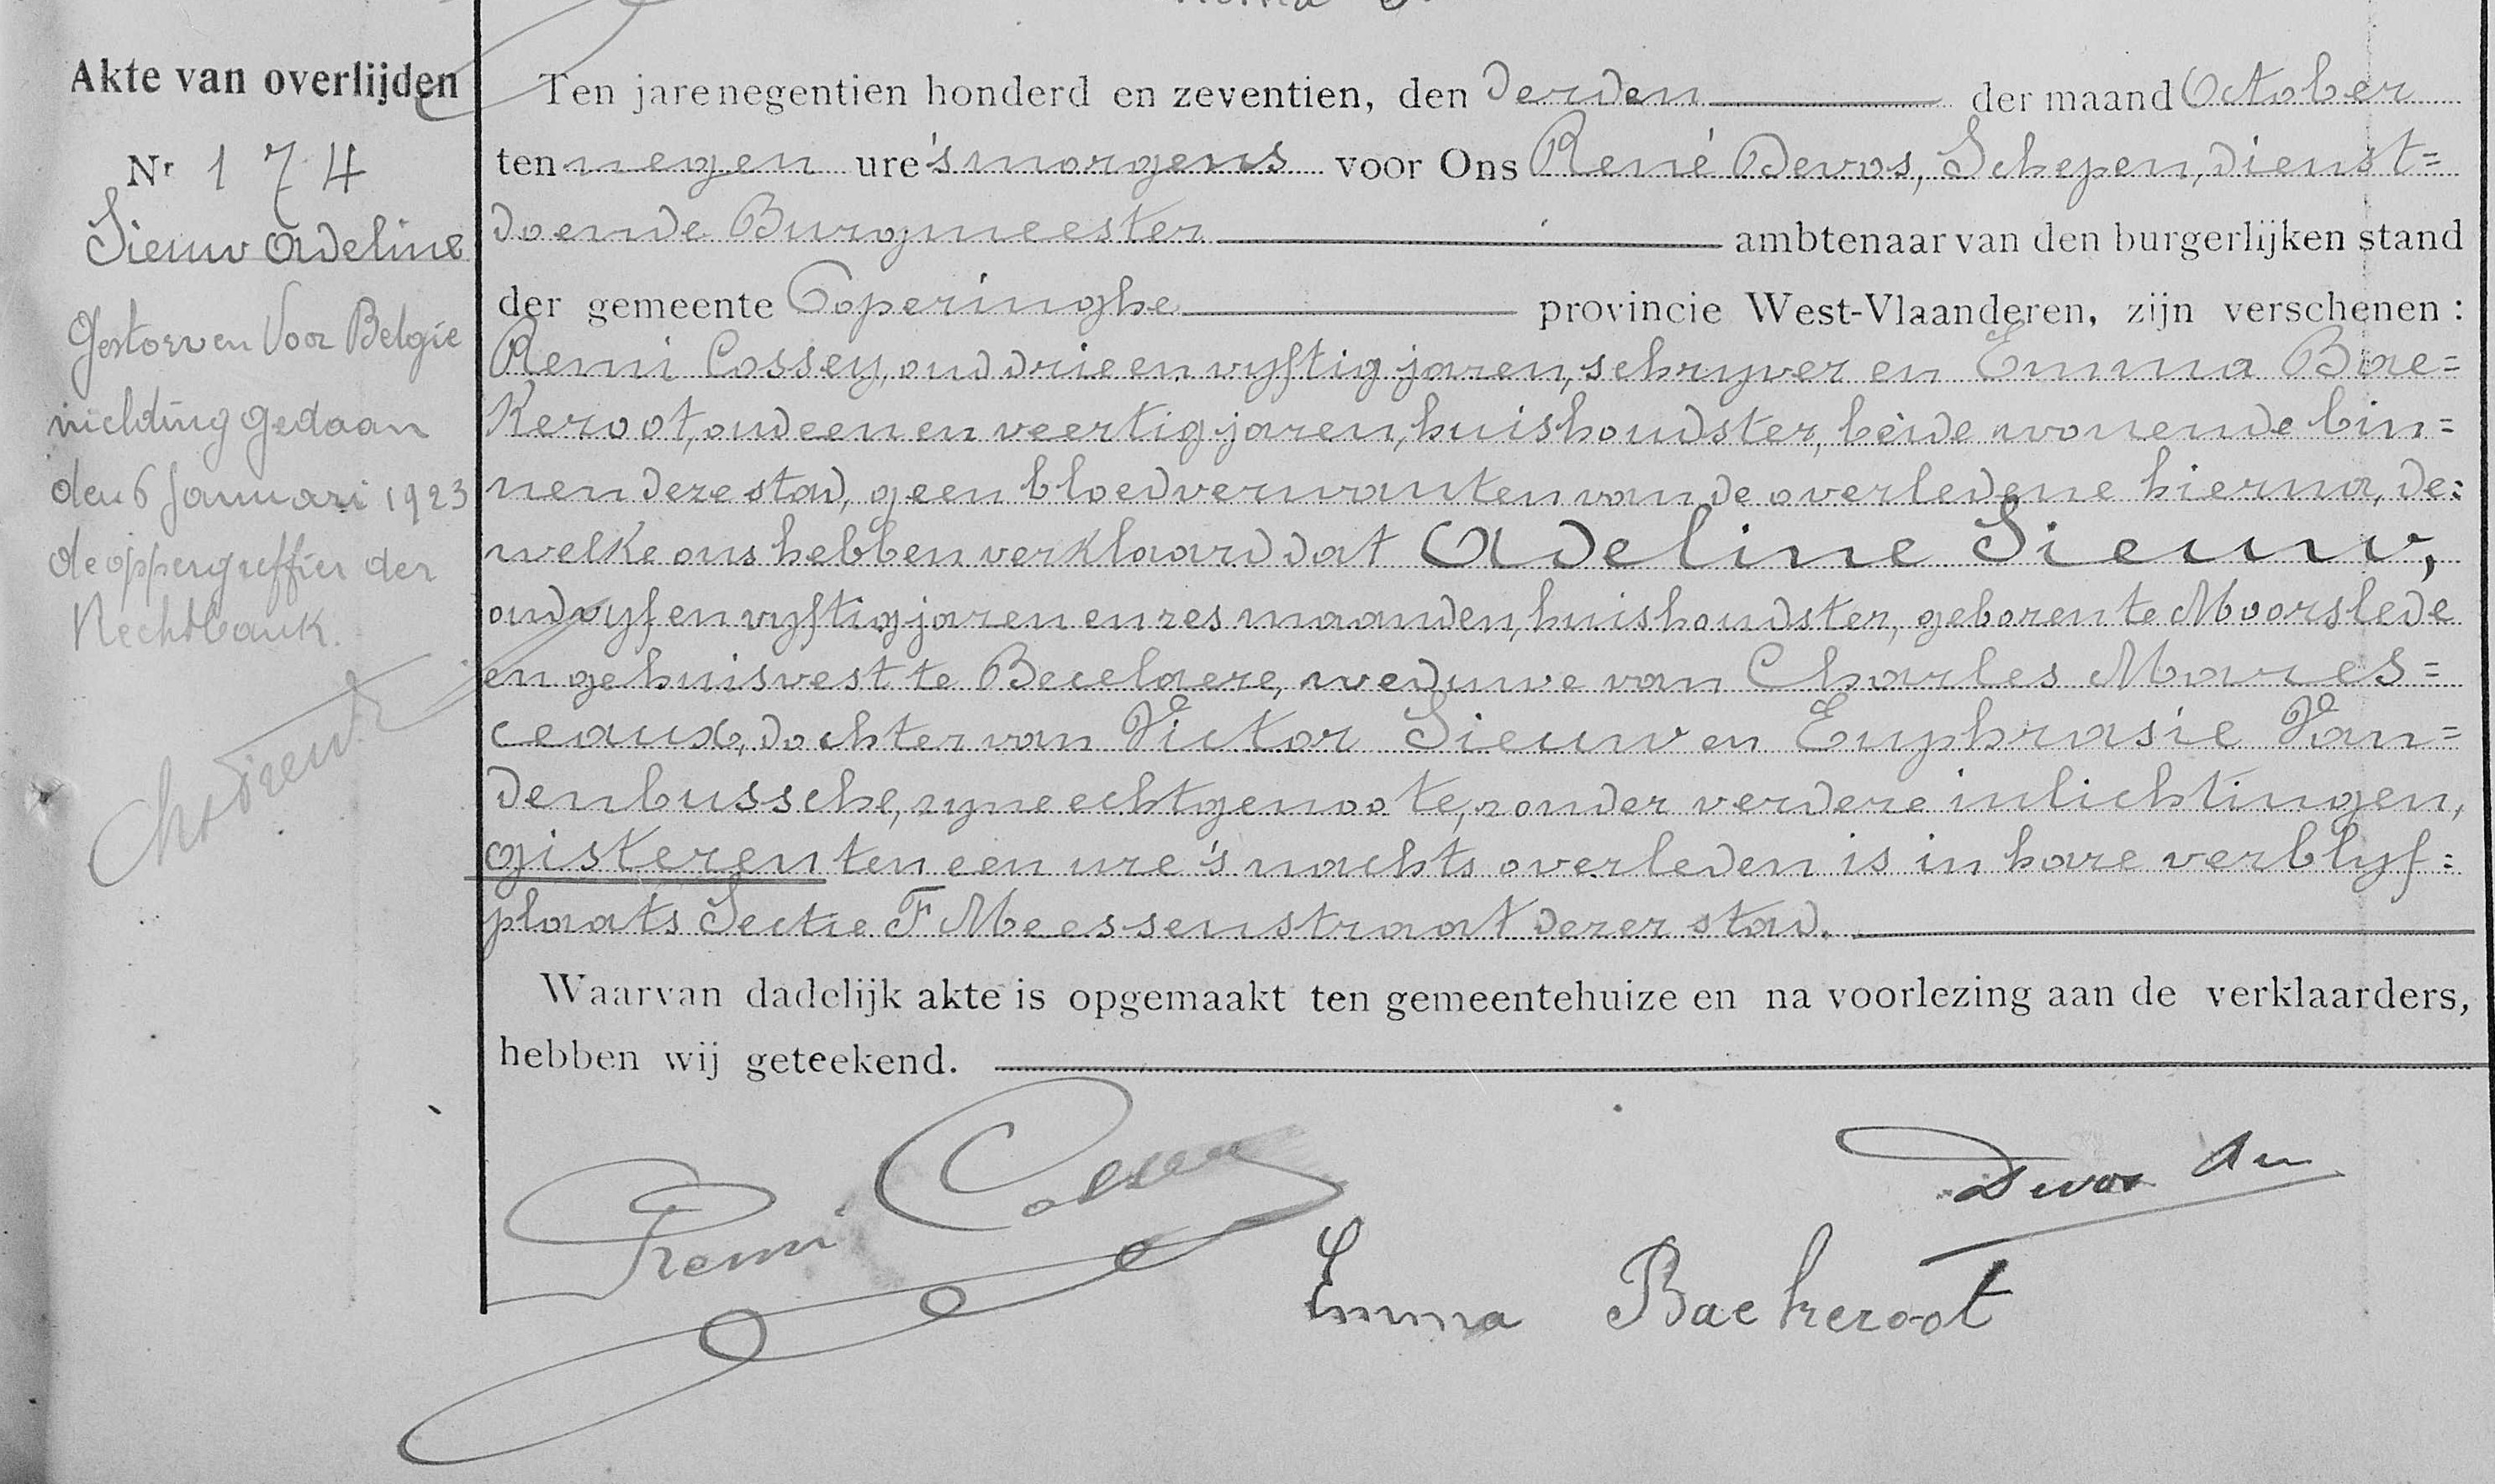 Akte van overlijden
Nr 174
Sieuw Adeline
Gestorven Voor Belgie
melding gedaan
den 6 Januari 1923
de oppergreffier der
Rechtbank.
Ten jare negentien honderd en zeventien, den derden der maand October
ten negen ure 's morgens voor Ons René Devos, Schepen, dienst=
doende Burgmeester ambtenaar van den burgerlijken stand
der gemeente Poperinghe provincie West-Vlaanderen, zijn verschenen :
Remi Cossey, oud drie en vyftig jaren, schryver en Emma Bae=
keroot, oud een en veertig jaren, huishoudster, beide wonende bin=
nen deze stad, geen bloedverwanten van de overledene hierna, de=
welke ons hebben verklaard dat Adeline Sieuw,
oud vyf en vyftig jaren en zes maanden, huishoudster, geboren te Moorslede
en gehuisvest te Becelaere, weduwe van Charles Mares=
ceaux, dochter van Victor Sieuw en Euphrasie Van=
denbussche, zyne echtgenoote, zonder verdere inlichtingen,
gisteren ten een ure 's nachts overleden is in hare verblyf=
plaats Sectie F Meessenstraat dezer stad.
Waarvan dadelijk akte is opgemaakt ten gemeentehuize en na voorlezing aan de verklaarders,
hebben wij geteekend.
Remi Cossey
Devos
Emma Baekeroot